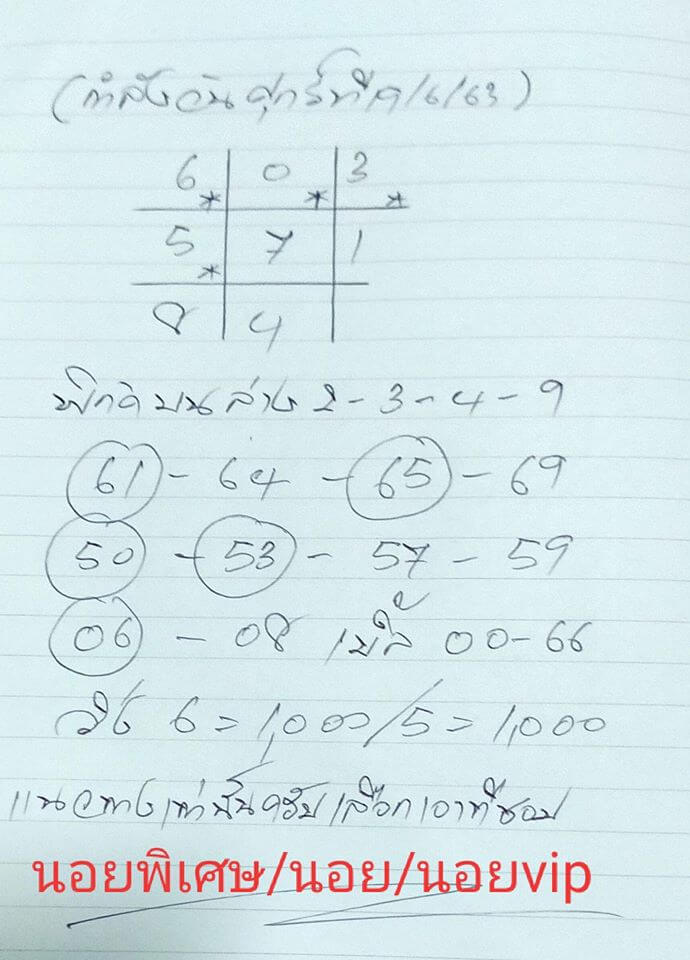 (กำลังวันศุกร์ที่ 19/6/63)
6* 0* 3*
5* 7 1
8 4
พิกัดบนล่าง 2-3-4-9
61 - 64 - 65 - 69
50 - 53 - 57 - 59
06 - 08 เบิ้ล 00-66
วิ่ง 6 = 1,000/5 = 1,000
แนวทางเท่านั้นครับเลือกเอาที่ชอบ
นอยพิเศษ/นอย/นอยvip